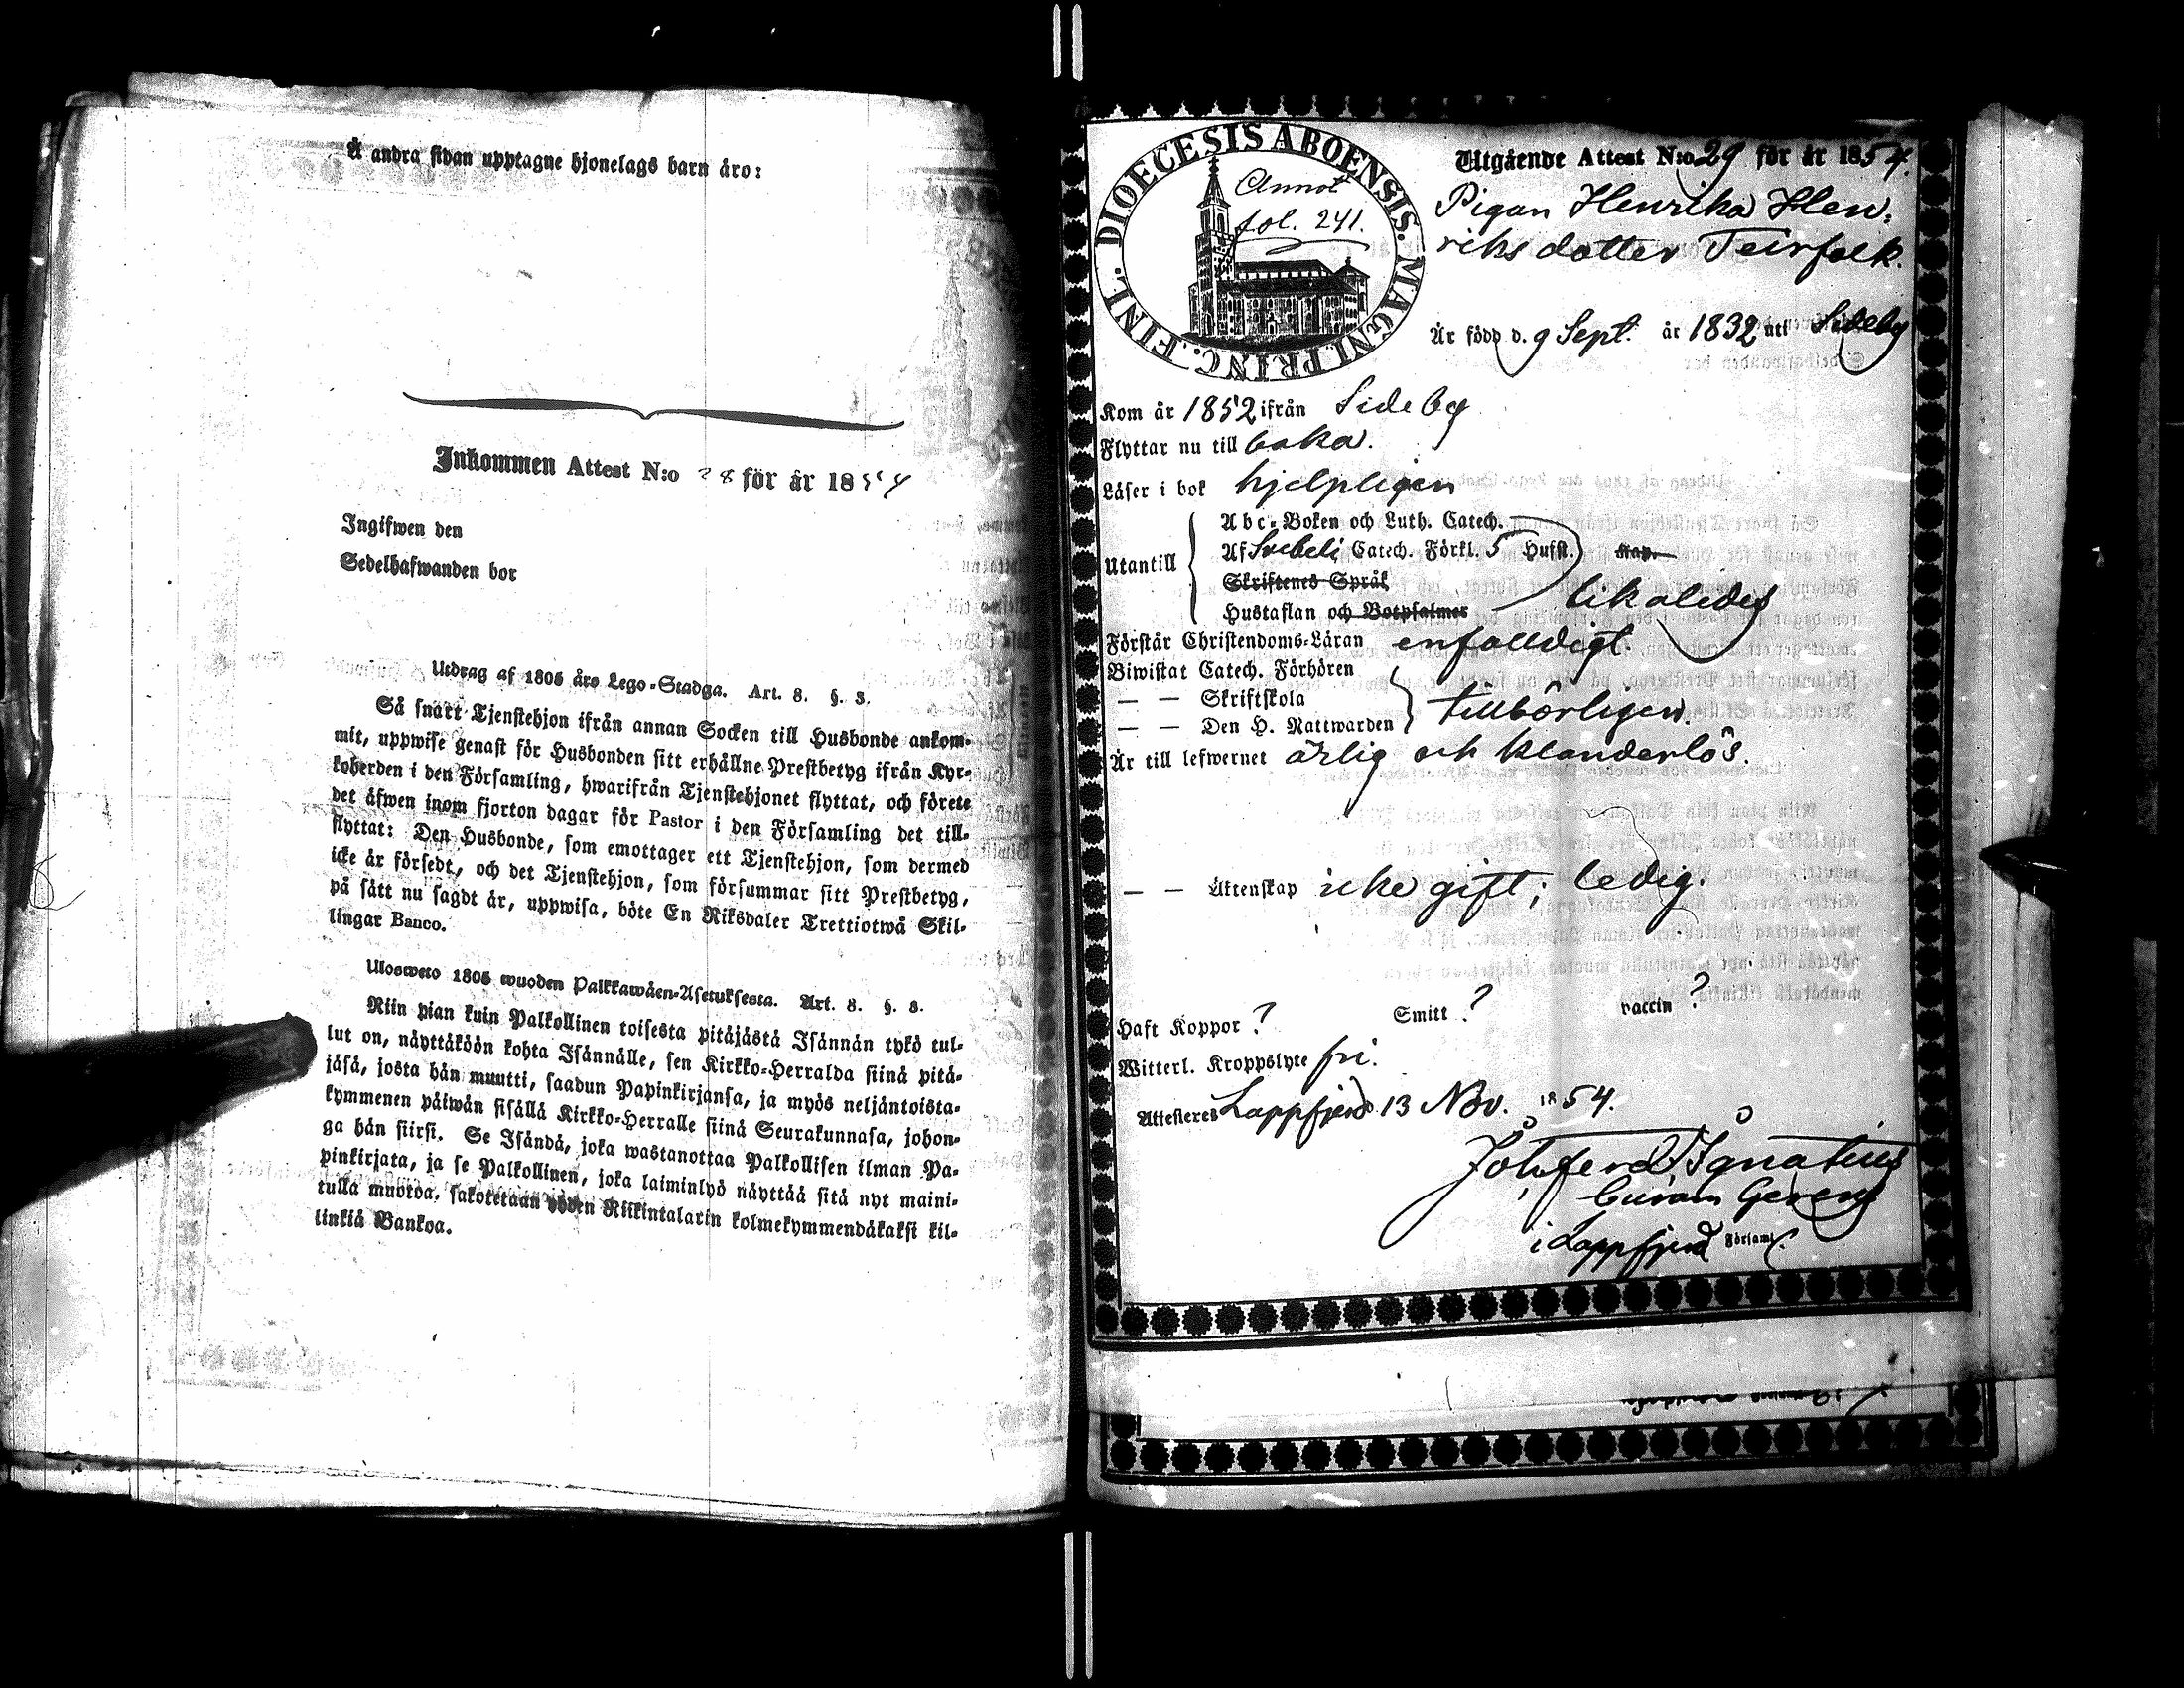 Å andra sidan upptagne hjonelags barn äro:
Inkommen Attest N:o 28 för år 1854
Ingifwen den
Sedelhafwanden bor
Utdrag af 1805 års Lego-Stadga. Art. 8. §. 3.
Så snart Tjenstehjon ifrån annan Socken till Husbonde ankom-
mit, uppwise genast för Husbonden sitt erhållne Prestbetyg ifrån Kyr-
koherden i den Församling, hwarifrån Tjenstehjonet flyttat, och förete
det äfwen inom fjorton dagar för Pastor i den Församling det till-
flyttat: Den Husbonde, som emottager ett Tjenstehjon, som dermed
icke är försedt, och det Tjenstehjon, som försummar sitt Prestbetyg,
på sätt nu sagdt är, uppwisa, böte En Riksdaler Trettiotwå Skil-
lingar Banco.
Ulosweto 1805 wuoden Palkkawäen-Asetuksesta. Art. 8. §. 3.
Niin pian kuin Palkollinen toisesta pitäjästä Isännän tykö tul-
lut on, näyttäköön kohta Isännälle, sen Kirkko-Herralda siinä pitä-
jäsä, josta hän muutti, saadun Papinkirjansa, ja myös neljäntoista-
kymmenen päiwän sisällä Kirkko-Herralle siinä Seurakunnasa, johon-
ga hän siirsi. Se Isändä, joka wastanottaa Palkollisen ilman Pa-
pinkirjata, ja se Palkollinen, joka laiminlyö näyttää sitä nyt maini-
tulla muotoa, sakotetaan yhden Riikintalarin kolmekymmendäkaksi kil-
linkiä Bankoa.
DIOECESIS ABOENSIS. MAGNI PRINC. FINL.
Annot
fol. 241.
Utgående Attest N:o 29 för år 1854.
Pigan Henrika Hen-
riksdotter Teirfolk.
Är född d. 9 Sept. år 1832 uti Sideby
Kom år 1852 ifrån Sideby
Flyttar nu till baka.
Läser i bok hjelpligen
Utantill
Abc-Boken och Luth. Catech.
Af Svebeli Catech. Förkl. 5 Hufst. Kap.
Skriftenes Språk
Hustaflan och Botpsalmer likaledes
Förstår Christendoms-Läran enfalldigt.
Biwistat Catech. Förhören
— — Skriftskola
— — Den H. Nattwarden tillbörligen.
Är till lefwernet ärlig och klanderlös.
— — Äktenskap icke gift; ledig.
Haft Koppor ? Smitt ? vaccin ?
Witterl. Kroppslyte fri.
Attesteres Lappfjerd 13 Nov. 1854.
Ignatius
Curam Gerens
i Lappfjerd Församl.